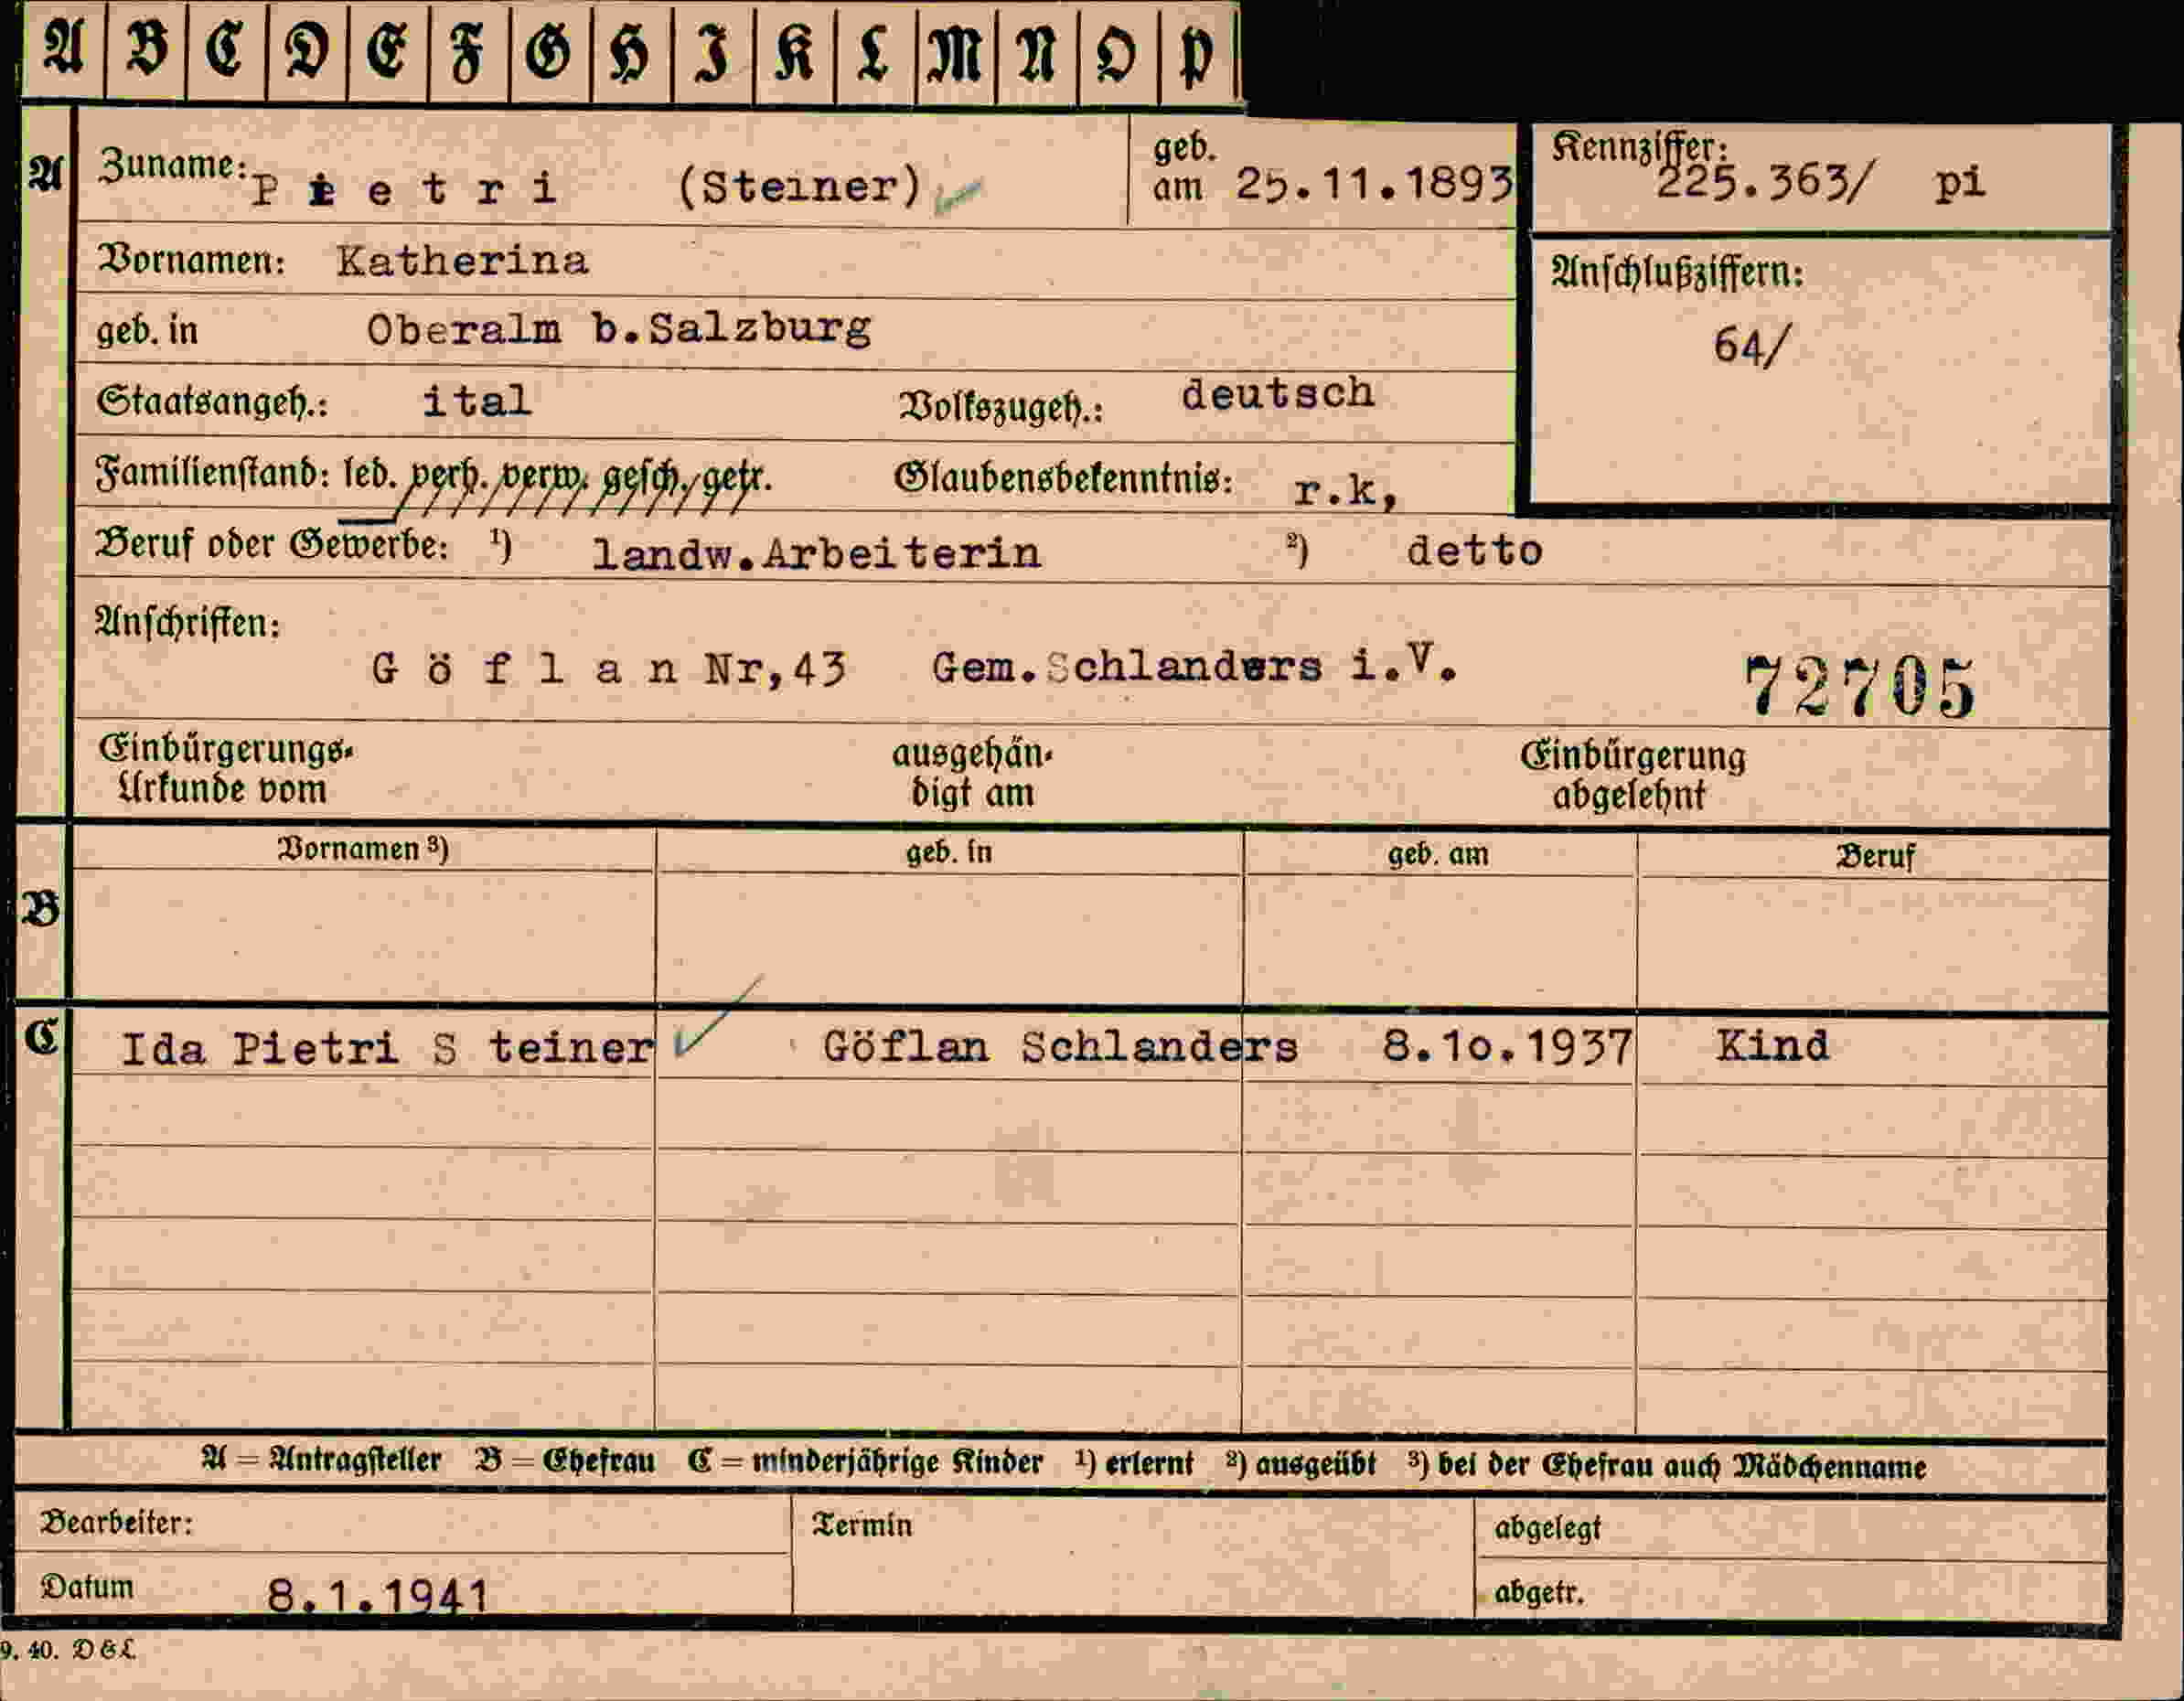 A B C D E F G H I K L M N O P
A Zuname: Pietri (Steiner) geb. am 25.11.1893 Kennziffer: 225.363/ pi
Vornamen: Katherina
Anschlußziffern:
geb. in Oberalm b.Salzburg
64/
Staatsangeh.: ital Volkszugeh.: deutsch
Familienstand: led. verh. verw. gesch. getr. Glaubensbekenntnis: r.k,
Beruf oder Gewerbe: ¹) landw.Arbeiterin ²) detto
Anschriften:
Göflan Nr,43 Gem.Schlanders i.V. 72705
Einbürgerungs- ausgehän- Einbürgerung
Urkunde vom digt am abgelehnt
Vornamen ³) geb. in geb. am Beruf
B
C Ida Pietri S teiner Göflan Schlanders 8.10.1937 Kind
A = Antragsteller B = Ehefrau C = minderjährige Kinder ¹) erlernt ²) ausgeübt ³) bei der Ehefrau auch Mädchenname
Bearbeiter: Termin abgelegt
Datum 8.1.1941 abgetr.
9. 40. D & L